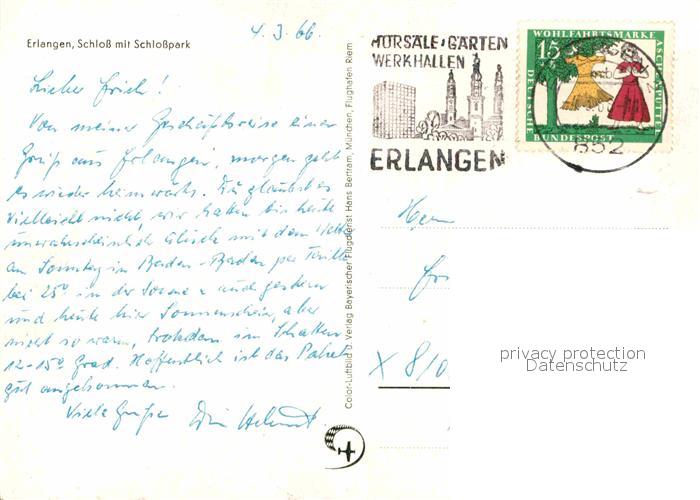 4.3.66.
Erlangen, Schloß mit Schloßpark
Lieber Erich!
Von meiner Geschäftsreise einen
Gruß aus Erlangen, morgen geht
es wieder heimwärts. Du glaubst es
vielleicht nicht, wir hatten bis heute
unwahrscheinlich Glück mit dem Wetter
am Sonntag in Baden-Baden per
bei 25° in der Sonne u. auch gestern
und heute hier Sonnenschein, aber
nicht so warm, trotzdem im Schatten
12-15° Grad. Hoffentlich ist das Paket
gut angekommen.
Viele Grüße Dein Helmut.
Color-Luftbild u. Verlag Bayerischer Flugdienst Hans Bertram, München, Flughafen Riem
HÖRSÄLE·GÄRTEN
WERKHALLEN
ERLANGEN
WOHLFAHRTSMARKE
15
ASCHENPUTTEL
DEUTSCHE
BUNDESPOST
852
Herrn
X 8/0
privacy protection
Datenschutz